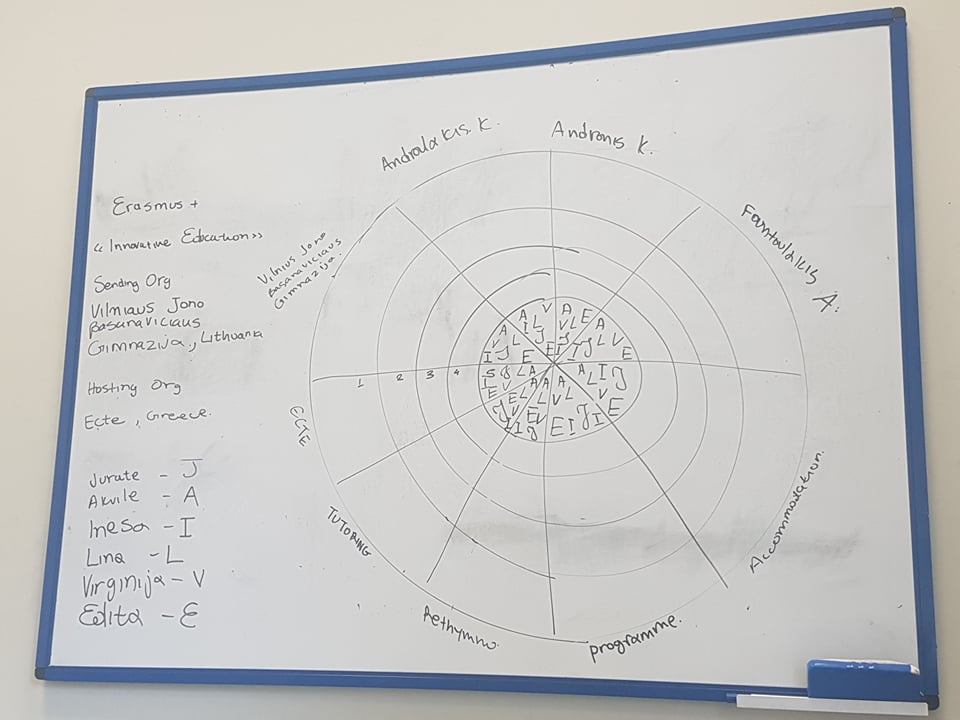 Erasmus +
<< Innovative Education >>
Sending Org
Vilniaus Jono
Basanaviciaus
Gimnazija, Lithuania
Hosting Org
Ecte, Greece.
Jurate - J
Akvile - A
Inesa - I
Lina - L
Virginija - V
Edita - E
Andralakis K.
Andronis K.
A.
Vilnius Jono
Basanaviciaus
Gimnazija.
1 2 3 4
ECTE
TUTORING
Rethymno.
programme.
Accommodation.